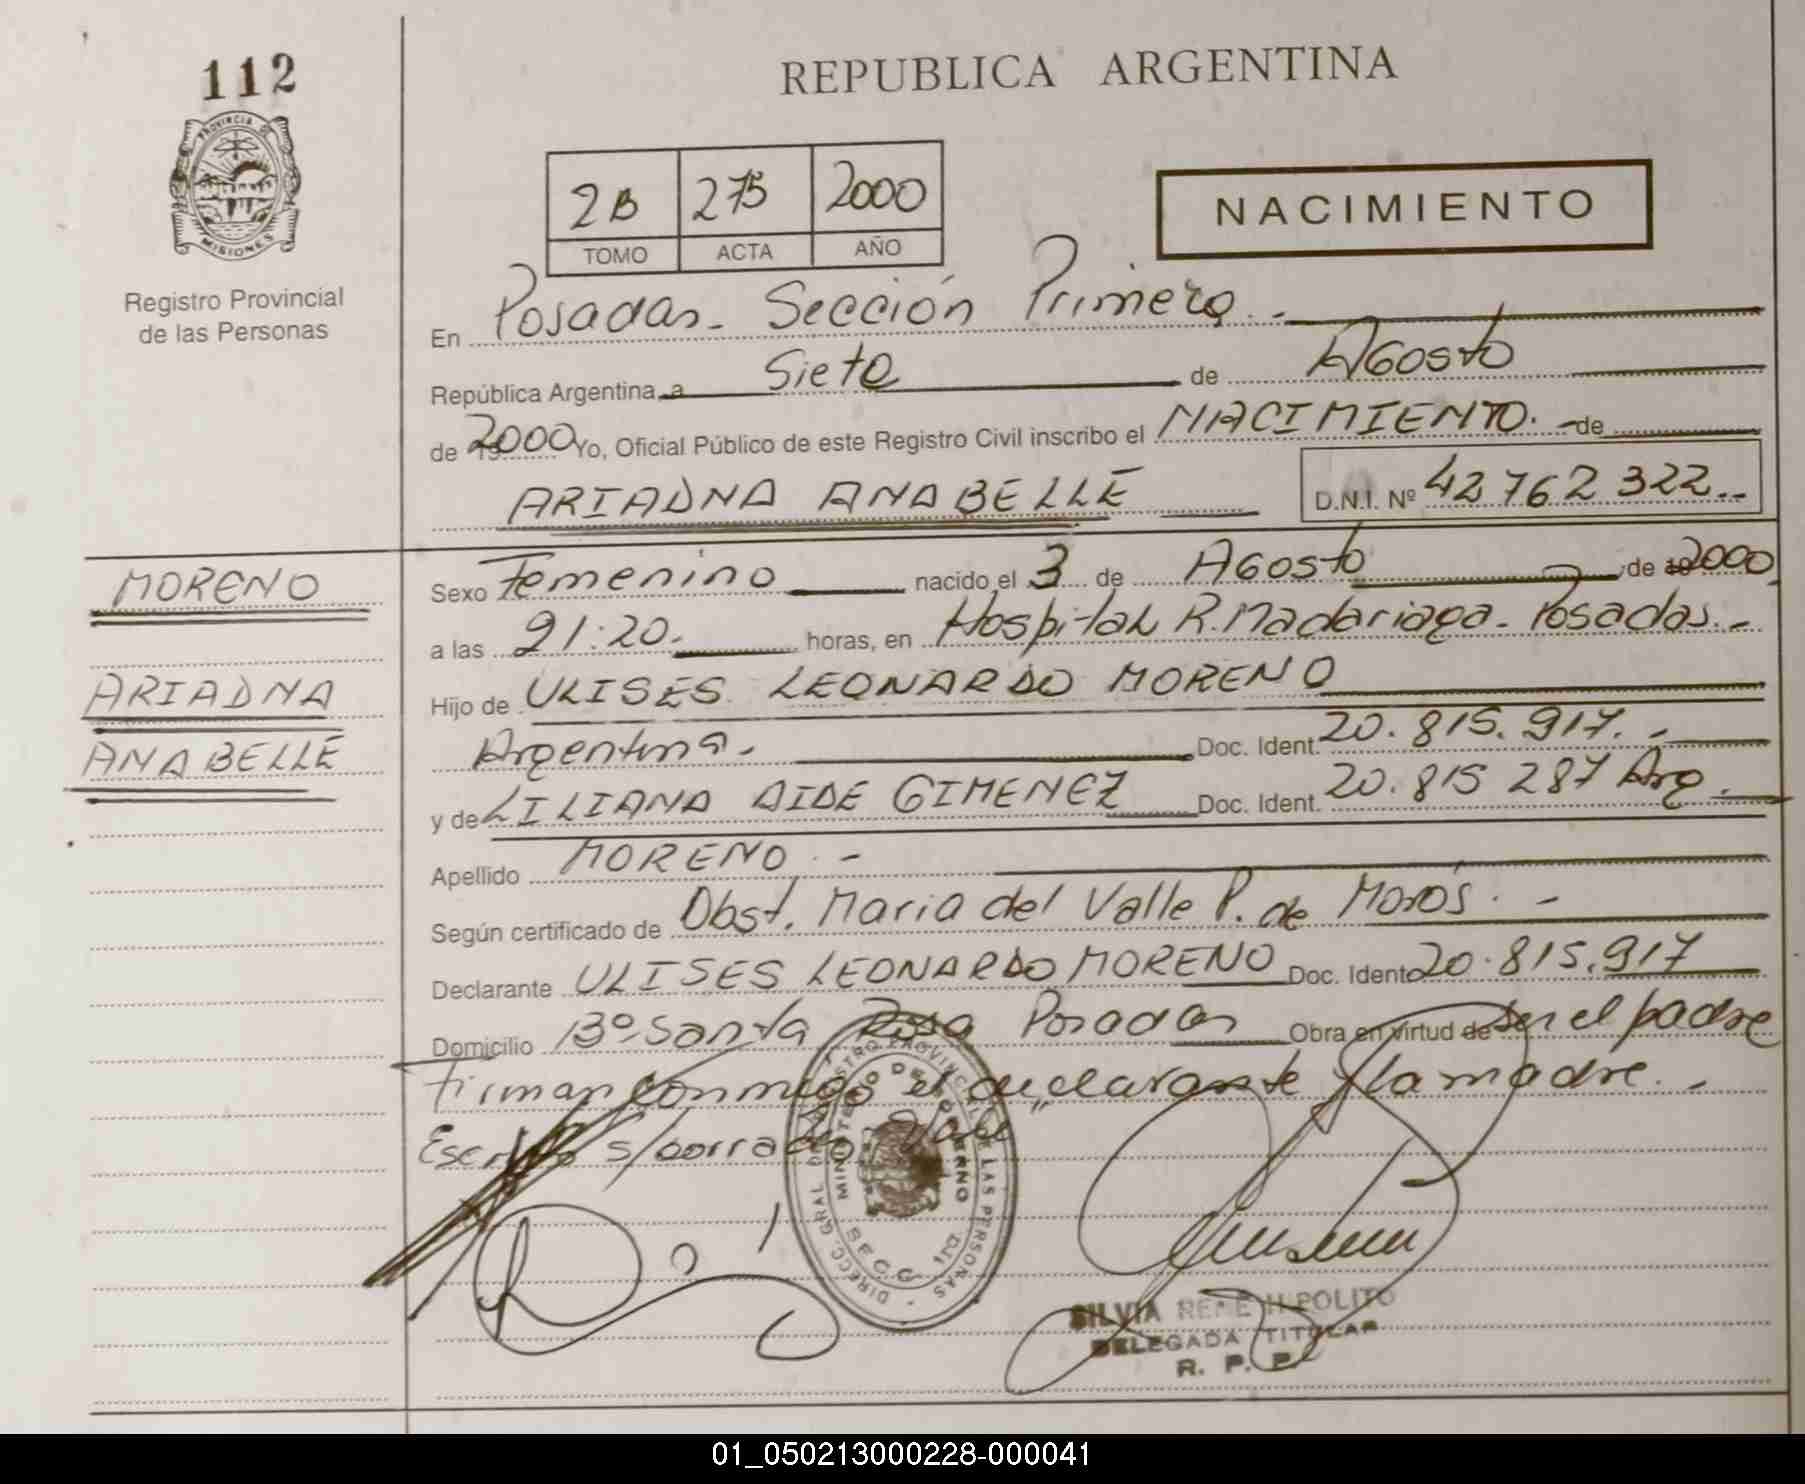 112
PROVINCIA DE
MISIONES
Registro Provincial
de las Personas
REPUBLICA ARGENTINA
2B 275 2000
TOMO ACTA AÑO
NACIMIENTO
En Posadas - Sección Primera . -
República Argentina, a Siete de Agosto
de 2000 Yo, Oficial Público de este Registro Civil inscribo el NACIMIENTO. - de
ARIADNA ANABELLE D.N.I. Nº 42 762 322..
MORENO
ARIADNA
ANABELLE
Sexo Femenino nacido el 3 de Agosto de 2000
a las 21:20. horas, en Hospital R. Madariaga - Posadas. -
Hijo de ULISES LEONARDO MORENO
Argentina. Doc. Ident. 20.815.917. -
y de LILIANA AIDE GIMENEZ Doc. Ident. 20.815 287 Arg. -
Apellido MORENO . -
Según certificado de Obst. Maria del Valle P. de . -
Declarante ULISES LEONARDO MORENO Doc. Ident 20.815.917
Domicilio Bº Santa Rosa Posadas Obra en virtud de ser el padre
Firman conmigo el declarante y la madre. -
Escrito s/borrado Vale
DIRECC. GRAL. DEL REGISTRO PROVINCIAL DE LAS PERSONAS
MINISTERIO DE GOBIERNO
SECC. 1RA
SILVIA RENE HIPOLITO
DELEGADA TITULAR
R. P. P.
01_050213000228-000041